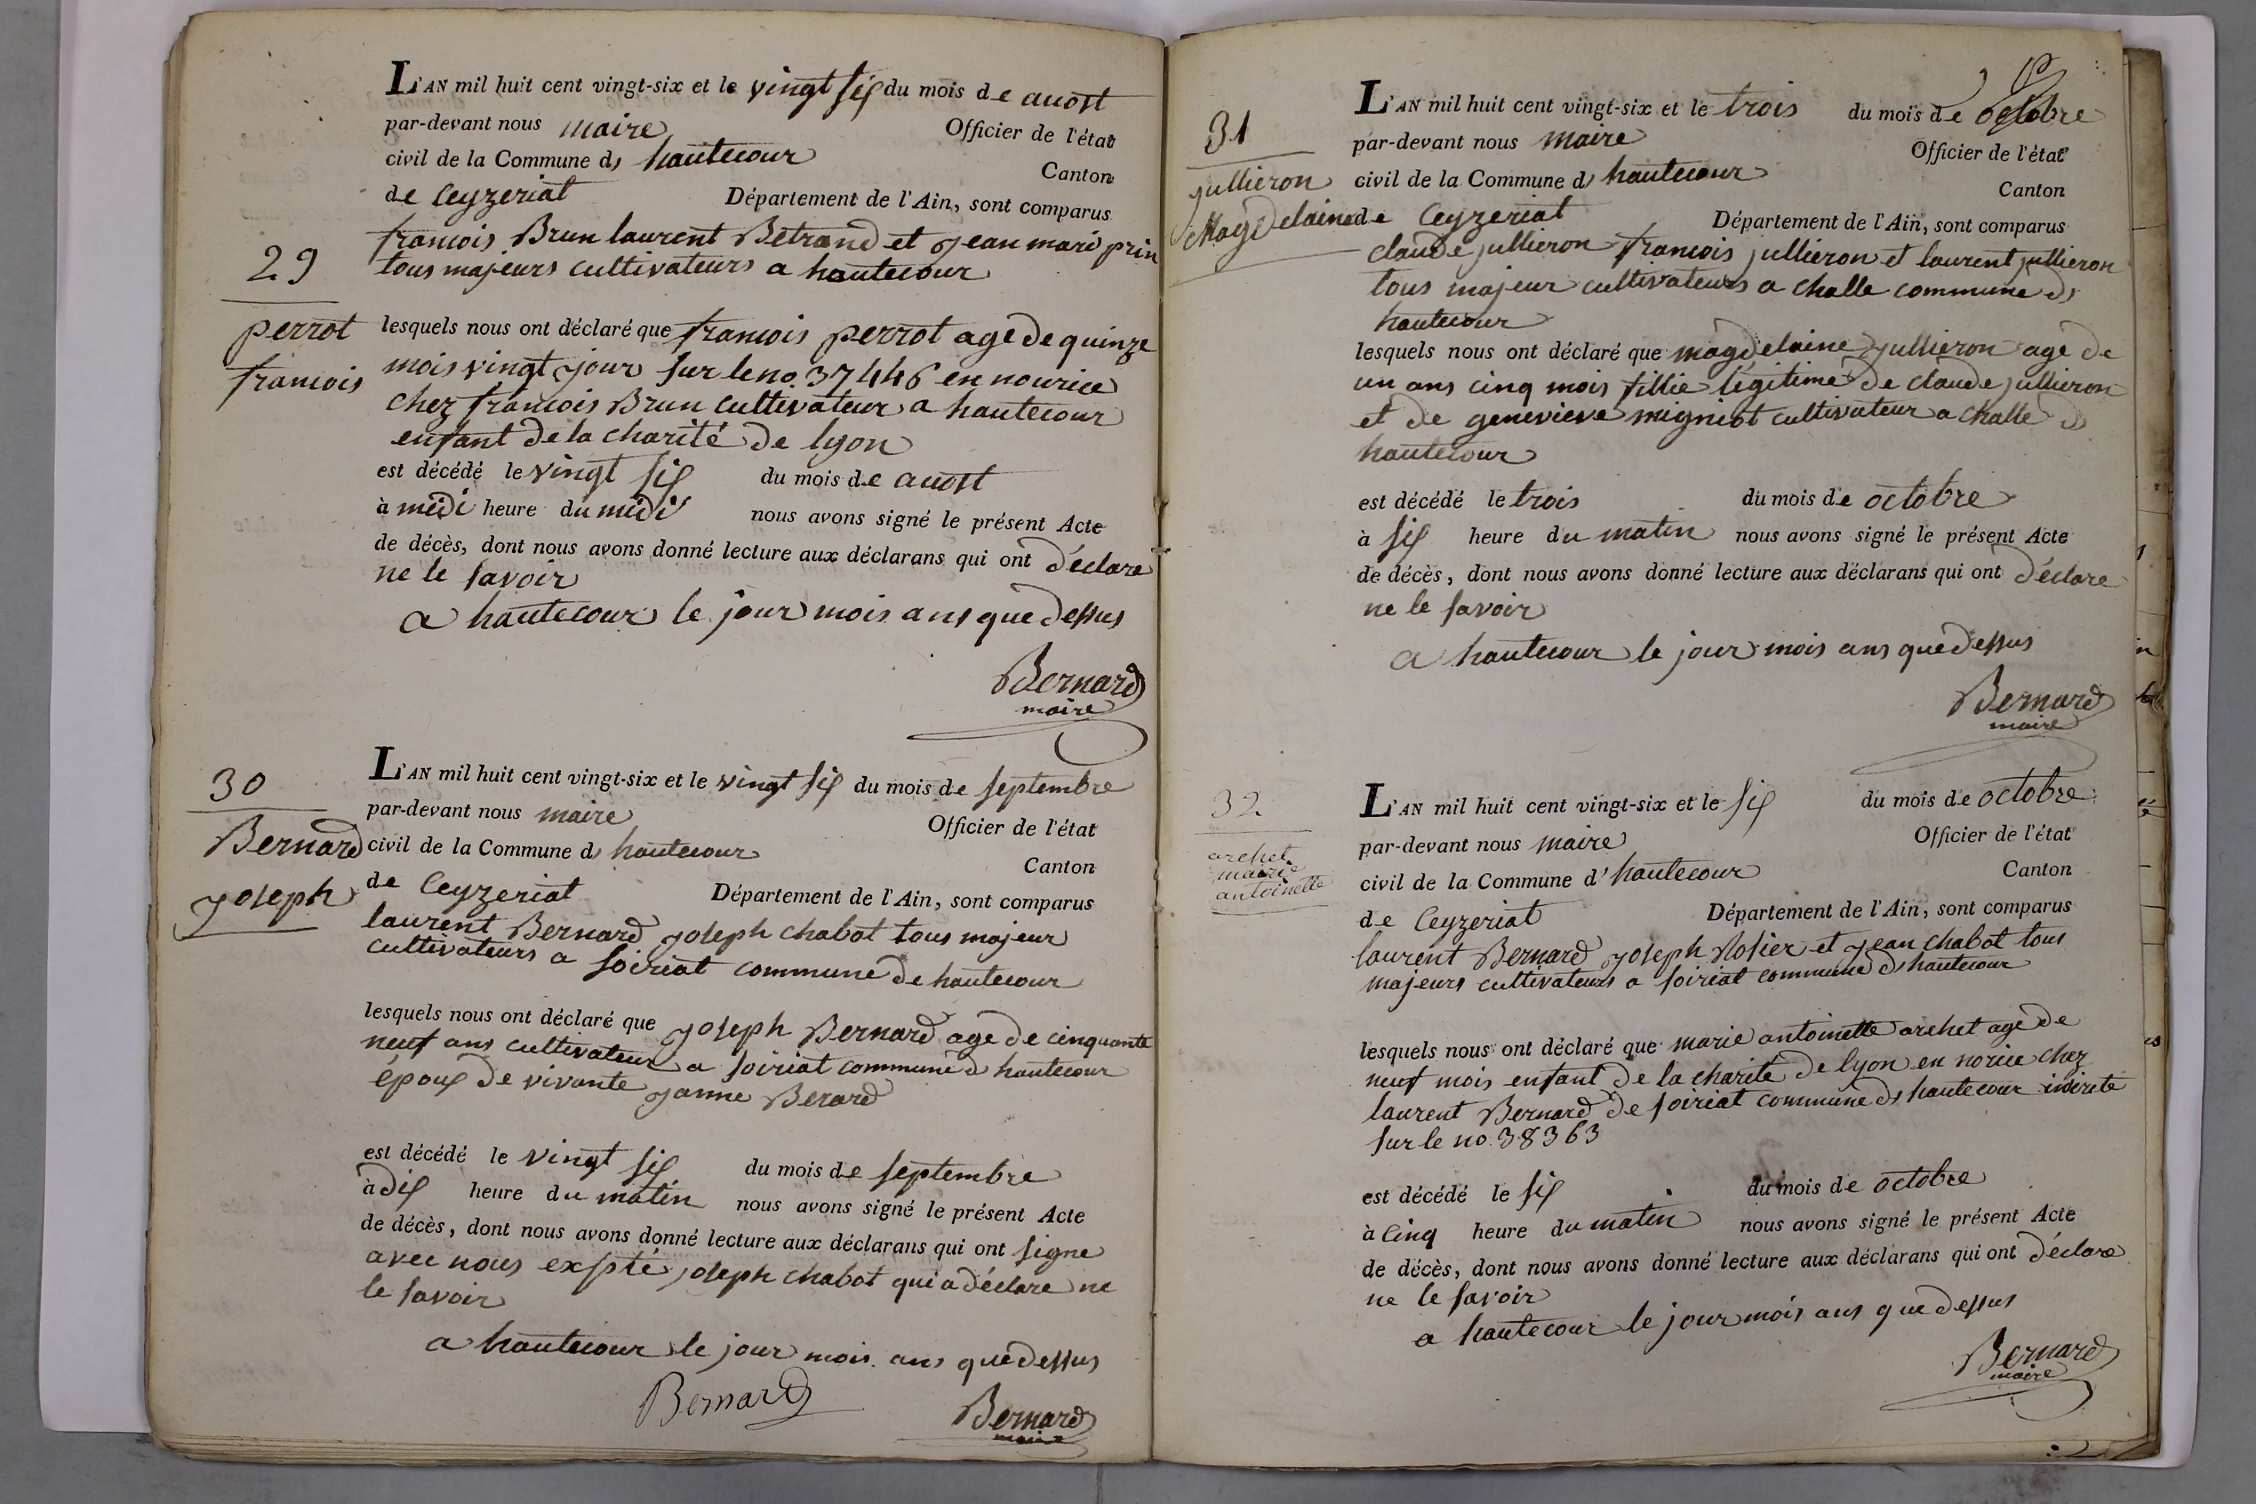 L'AN mil huit cent vingt-six et le vingt six du mois de auost
par-devant nous maire Officier de l'état
civil de la Commune d hautecour Canton
de Ceyzeriat Département de l'Ain, sont comparus
francois Brun laurent Betrand et jean marie prin
tous majeurs cultivateurs a hautecour
29
perrot
francois
lesquels nous ont déclaré que francois perrot age de quinze
mois vingt jour sur le no. 37446 en nourice
chez francois Brun cultivateur a hautecour
enfant de la charité de lyon
est décédé le vingt six du mois de auost
à midi heure du midi nous avons signé le présent Acte
de décès, dont nous avons donné lecture aux déclarans qui ont déclare
ne le savoir
a hautecour le jour mois ans que dessus
Bernard
maire
30
Bernard
joseph
L'AN mil huit cent vingt-six et le vingt six du mois de septembre
par-devant nous maire Officier de l'état
civil de la Commune d hautecour Canton
de Ceyzeriat Département de l'Ain, sont comparus
laurent Bernard joseph chabot tous majeur
cultivateurs a soiriat commune de hautecour
lesquels nous ont déclaré que joseph Bernard age de cinquante
neuf ans cultivateur a soiriat commune d hautecour
époux de vivante janne Berard
est décédé le vingt six du mois de septembre
à dix heure du matin nous avons signé le présent Acte
de décès, dont nous avons donné lecture aux déclarans qui ont signe
avec nous expté joseph chabot qui a déclare ne
le savoir
a hautecour le jour mois ans que dessus
Bernard
Bernard
maire
31
jullieron
Magdelaine
L'AN mil huit cent vingt-six et le trois du mois de octobre
par-devant nous maire Officier de l'état
civil de la Commune d hautecour Canton
de Ceyzeriat Département de l'Ain, sont comparus
claude jullieron francois jullieron et laurent jullieron
tous majeur cultivateurs a challe commune d
hautecour
lesquels nous ont déclaré que magdelaine jullieron age de
un ans cinq mois fillie légitime de claude jullieron
et de genevieve migniot cultivateur a challe d
hautecour
est décédé le trois du mois de octobre
à six heure du matin nous avons signé le présent Acte
de décès, dont nous avons donné lecture aux déclarans qui ont déclare
ne le savoir
a hautecour le jour mois ans que dessus
Bernard
maire
32
archet
marie
antoinette
L'AN mil huit cent vingt-six et le six du mois de octobre
par-devant nous maire Officier de l'état
civil de la Commune d' hautecour Canton
de Ceyzeriat Département de l'Ain, sont comparus
laurent Bernard joseph Rosier et jean chabot tous
majeurs cultivateurs a soiriat commune d hautecour
lesquels nous ont déclaré que marie antoinette archet age de
neuf mois enfant de la charité de lyon en norice chez
laurent Bernard de soiriat commune d hautecour
sur le no. 38363
est décédé le six du mois de octobre
à cinq heure du matin nous avons signé le présent Acte
de décès, dont nous avons donné lecture aux déclarans qui ont déclare
ne le savoir
a hautecour le jour mois ans que dessus
Bernard
maire